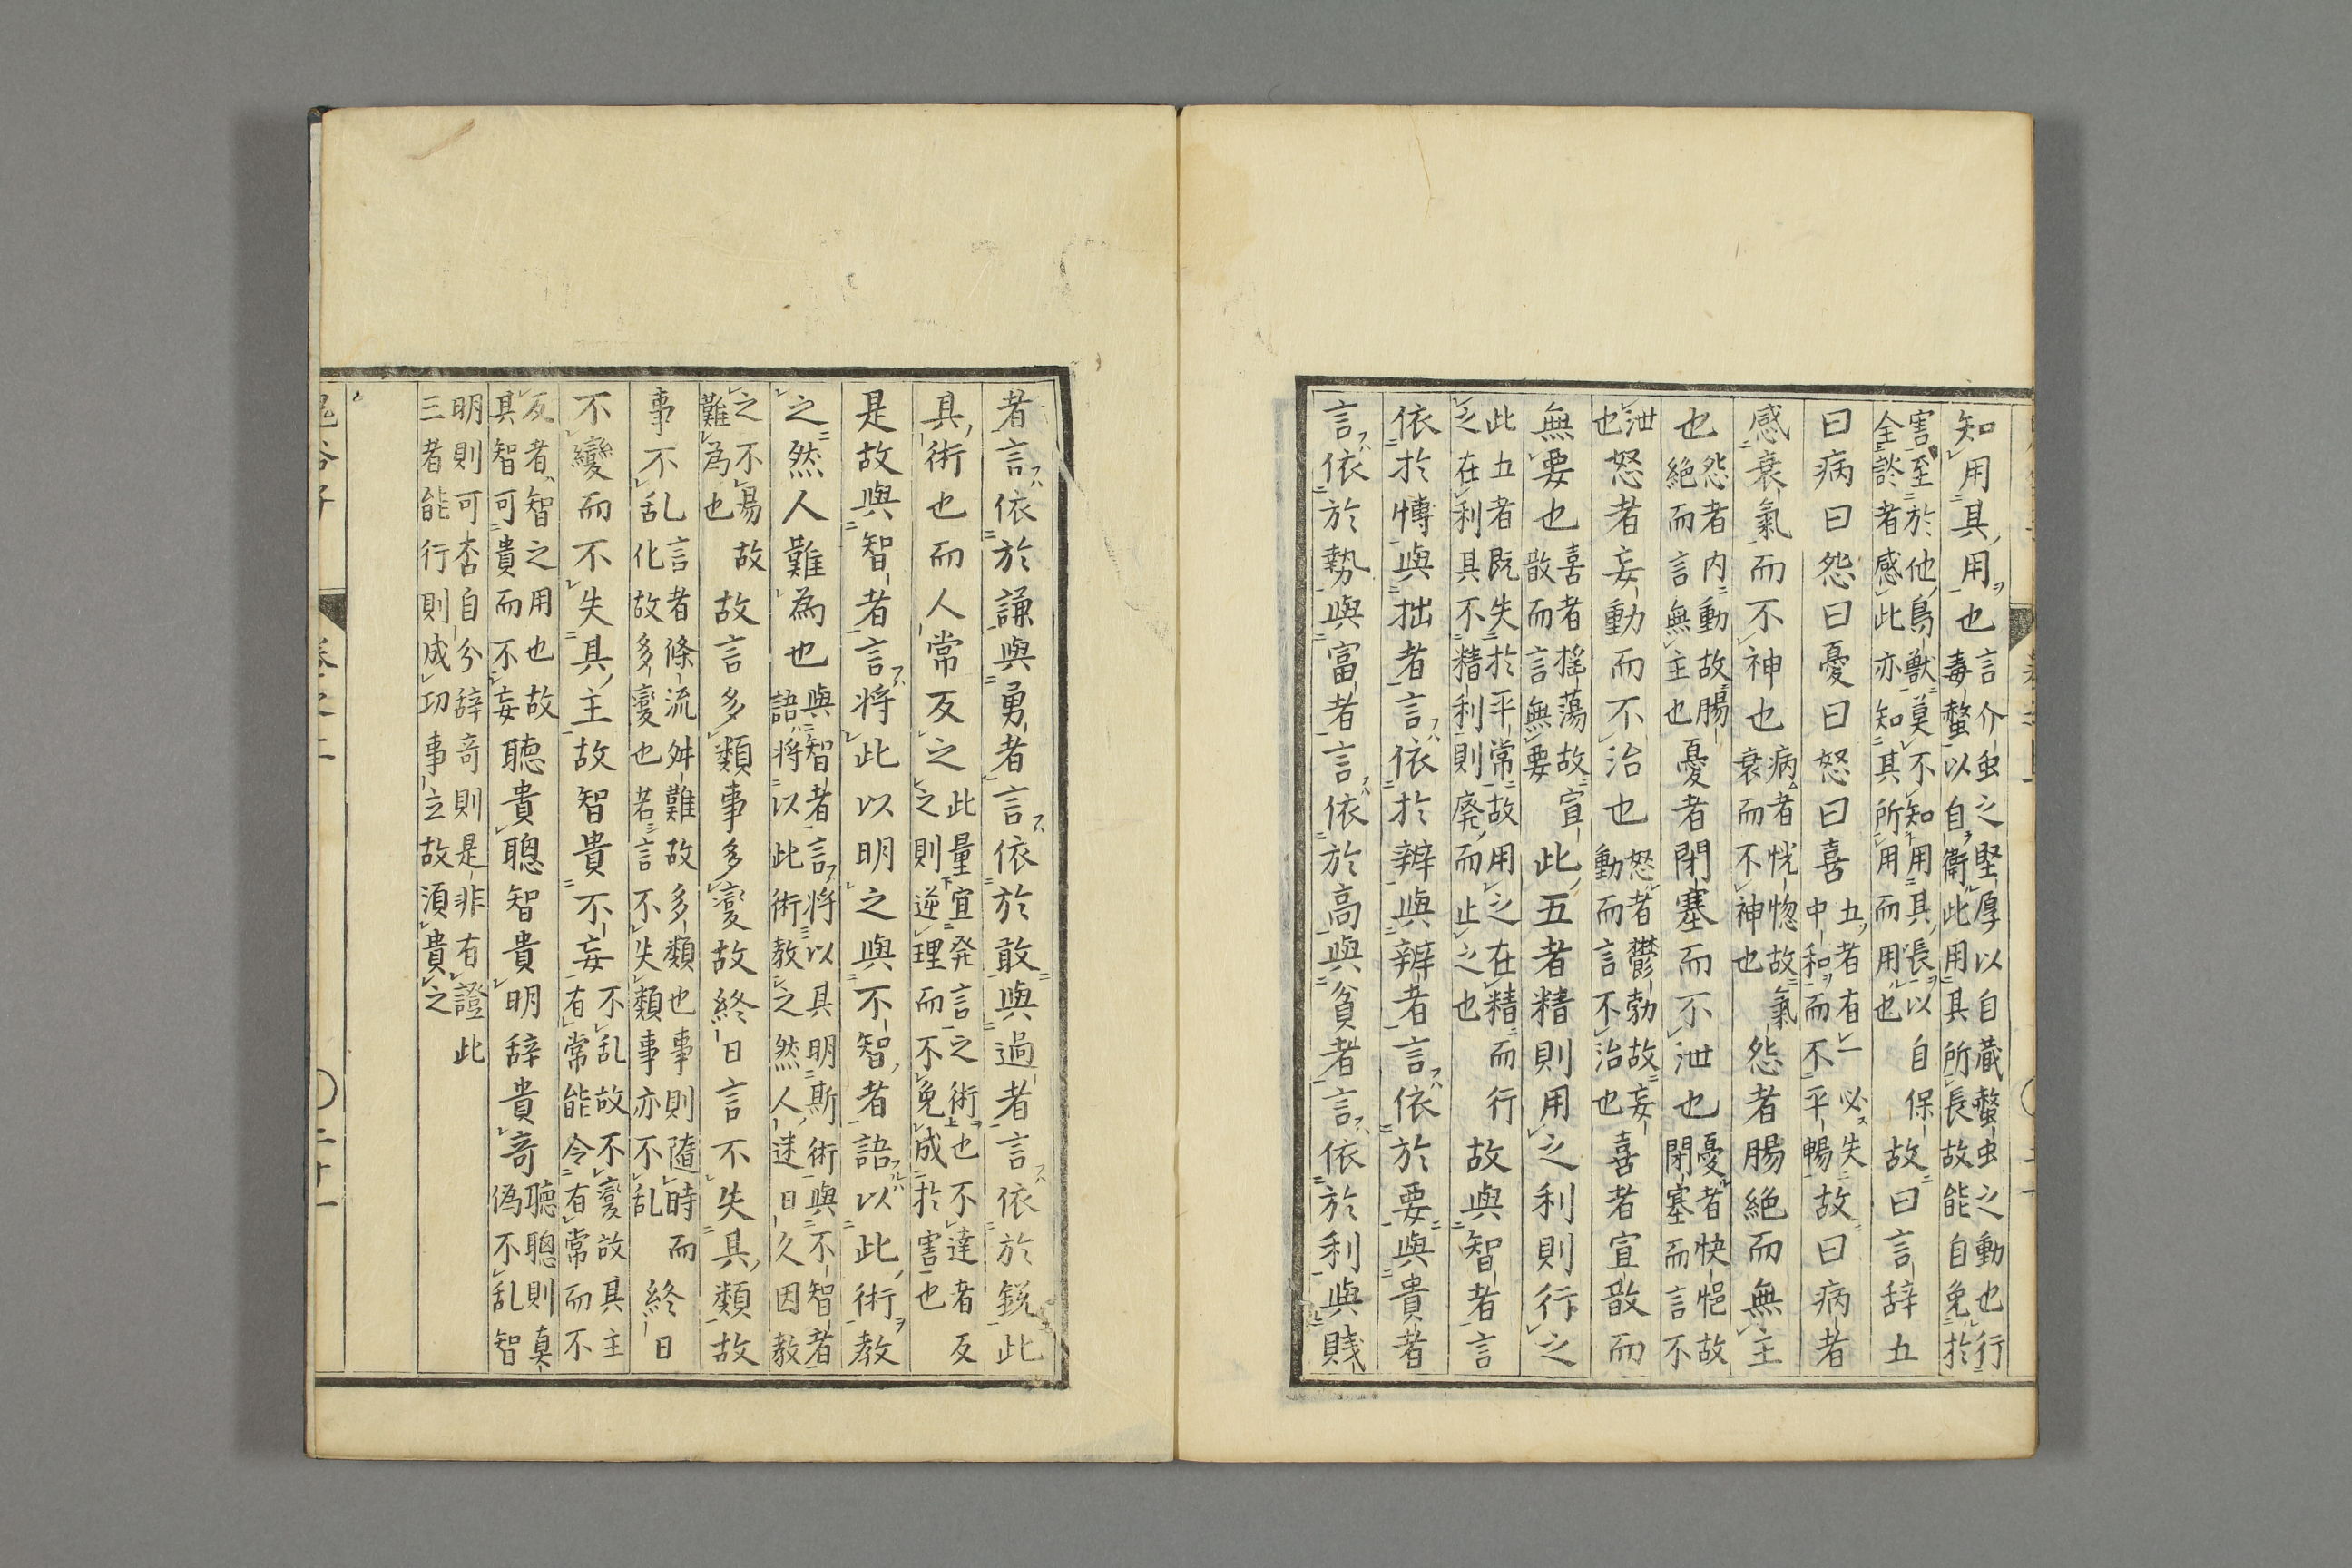 知用其用也言介虫之堅厚以自蔵螫虫之動也行
毒螫以自衛此用其所長故能自免於
害至於他鳥獣莫不知用其長以自保
全談者感此亦知其所用而用也故曰言辞五
曰病曰怨曰憂曰怒曰喜五者有一必失
中和而不平暢故曰病者
感衰氣而不神也病者恍惚故氣
衰而不神也怨者腸絶而無主
也怨者内動故腸
絶而言無主也憂者閉塞而不泄也憂者快悒故
閉塞而言不
泄
也怒者妄動而不治也怒者鬱勃故妄
動而言不治也喜者宣散而
無要也喜者揺蕩故宣
散而言無要此五者精則用之利則行之
此五者既失於平常故用之在精而行
之在利其不精利則廃而止之也故與智者言
依於慱與拙者言依於辨與辨者言依於要與貴者
言依於勢與富者言依於高與貧者言依於利與賤
者言依於謙與勇者言依於敢與過者言依於鋭此
其術也而人常反之此量宜発言之術也不達者反
之則逆理而不免成於害也
是故與智者言将此以明之與不智者語以此術教
之然人難為也與智者言将以其明斯術與不智者
語将以此術教之然人迷日久因教
之不易故
難為也故言多類事多變故終日言不失其類故
事不乱言者條流舛難故多類也事則隨時而
化故多變也若言不失類事亦不乱終日
不變而不失其主故智貴不妄不乱故不變故其主
有常能令有常而不
反者智之用也故
其智可貴而不妄聴貴聰智貴明辞貴奇聴聰則真
偽不乱智
明則可否自分辞奇則是非有證此
三者能行則成功事立故須貴之